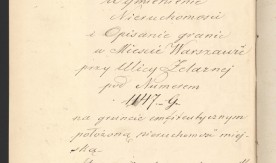 Wymienienie
Nieruchomości
i Opisanie granic
w Mieście Warszawie
przy Ulicy Żelaznej
pod Numerem
1147-G
na gruncie emfiteutycznym
położoną nieruchomość miej-
ską